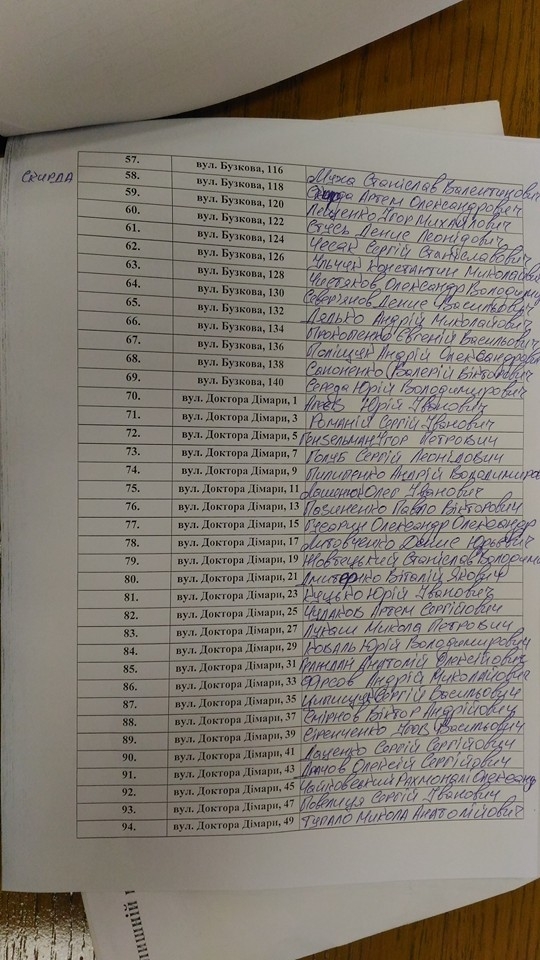 СКИРДА
57. вул. Бузкова, 116 Муха Станіслав Валентинович
58. вул. Бузкова, 118 Скирда Артем Олександрович
59. вул. Бузкова, 120 Лещенко Ігор Михайлович
60. вул. Бузкова, 122 Стусь Денис Леонідович
61. вул. Бузкова, 124 Чесак Сергій Станіславович
62. вул. Бузкова, 126 Ільчук Константин Миколайович
63. вул. Бузкова, 128 Чистяков Олександр Володими
64. вул. Бузкова, 130 Север'янов Денис Васильович
65. вул. Бузкова, 132 Лялько Андрій Миколайович
66. вул. Бузкова, 134 Прокопенко Євгеній Васильович
67. вул. Бузкова, 136 Поліщук Андрій Олександрович
68. вул. Бузкова, 138 Сапоненко Валерій Вікторович
69. вул. Бузкова, 140 Середа Юрій Володимирович
70. вул. Доктора Дімари, 1 Юрій Іванович
71. вул. Доктора Дімари, 3 Романій Сергій Іванович
72. вул. Доктора Дімари, 5 Гензельман Ігор Петрович
73. вул. Доктора Дімари, 7 Голуб Сергій Леонідович
74. вул. Доктора Дімари, 9 Пилипенко Андрій Володимиров
75. вул. Доктора Дімари, 11 Олег Іванович
76. вул. Доктора Дімари, 13 Пазиненко Павло Вікторович
77. вул. Доктора Дімари, 15 Олександр Олександр
78. вул. Доктора Дімари, 17 Литовченко Денис Юрьевич
79. вул. Доктора Дімари, 19 Жовтецький Станіслав Володими
80. вул. Доктора Дімари, 21 Дмитренко Віталій Якович
81. вул. Доктора Дімари, 23 Куцько Юрій Іванович
82. вул. Доктора Дімари, 25 Чудаков Артем Сергійович
83. вул. Доктора Дімари, 27 Лукаш Микола Петрович
84. вул. Доктора Дімари, 29 Коваль Юрій Володимирович
85. вул. Доктора Дімари, 31 Анатолій Олексійович
86. вул. Доктора Дімари, 33 Фірсов Андрій Миколайович
87. вул. Доктора Дімари, 35 Сергій Васильович
88. вул. Доктора Дімари, 37 Смірнов Віктор Андрійович
89. вул. Доктора Дімари, 39 Сіренченко Яков Васильович
90. вул. Доктора Дімари, 41 Даценко Сергій Сергійович
91. вул. Доктора Дімари, 43 Олексій Сергійович
92. вул. Доктора Дімари, 45 Чайковский Рахмоналі Олександ
93. вул. Доктора Дімари, 47 Повелиця Сергій Іванович
94. вул. Доктора Дімари, 49 Тупало Микола Анатолійович